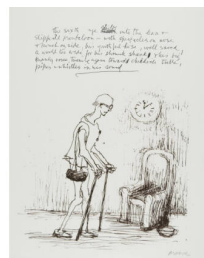 The sixth age into the lean &
slipper'd pantaloon - with spectacles on nose
& pouch on side, his youthful hose, well saved,
a world too wide for his shrunk shank & his big
manly voice, turning again toward childish treble,
pipes & whistles in his sound